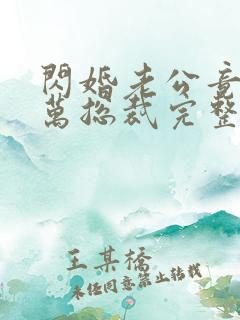 閃婚老公竟
萬總裁完整
王某橋
未經同意禁止轉載